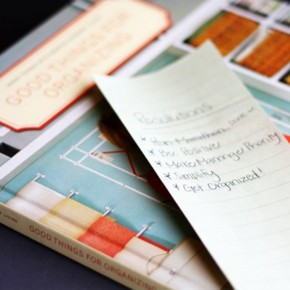 GOOD THINGS FOR
ORGANIZING
Resolutions
* Be Positive
* Make Marriage Priority
* Simplify
* Get Organized!
GOOD THINGS FOR ORGANIZING